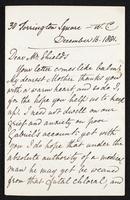 30 Torrington Square — W.C.
December 16. 1881.
Dear Mr. Shields
Your letter comes like balm,
my dearest Mother thanks you
with a warm heart and so do I,
for the hope you help us to
I need not dwell on our
grief and anxiety on poor
Gabriel's account: yet with
you I do hope that under the
absolute authority of a
man he may get be weaned
from that fatal chloral, and